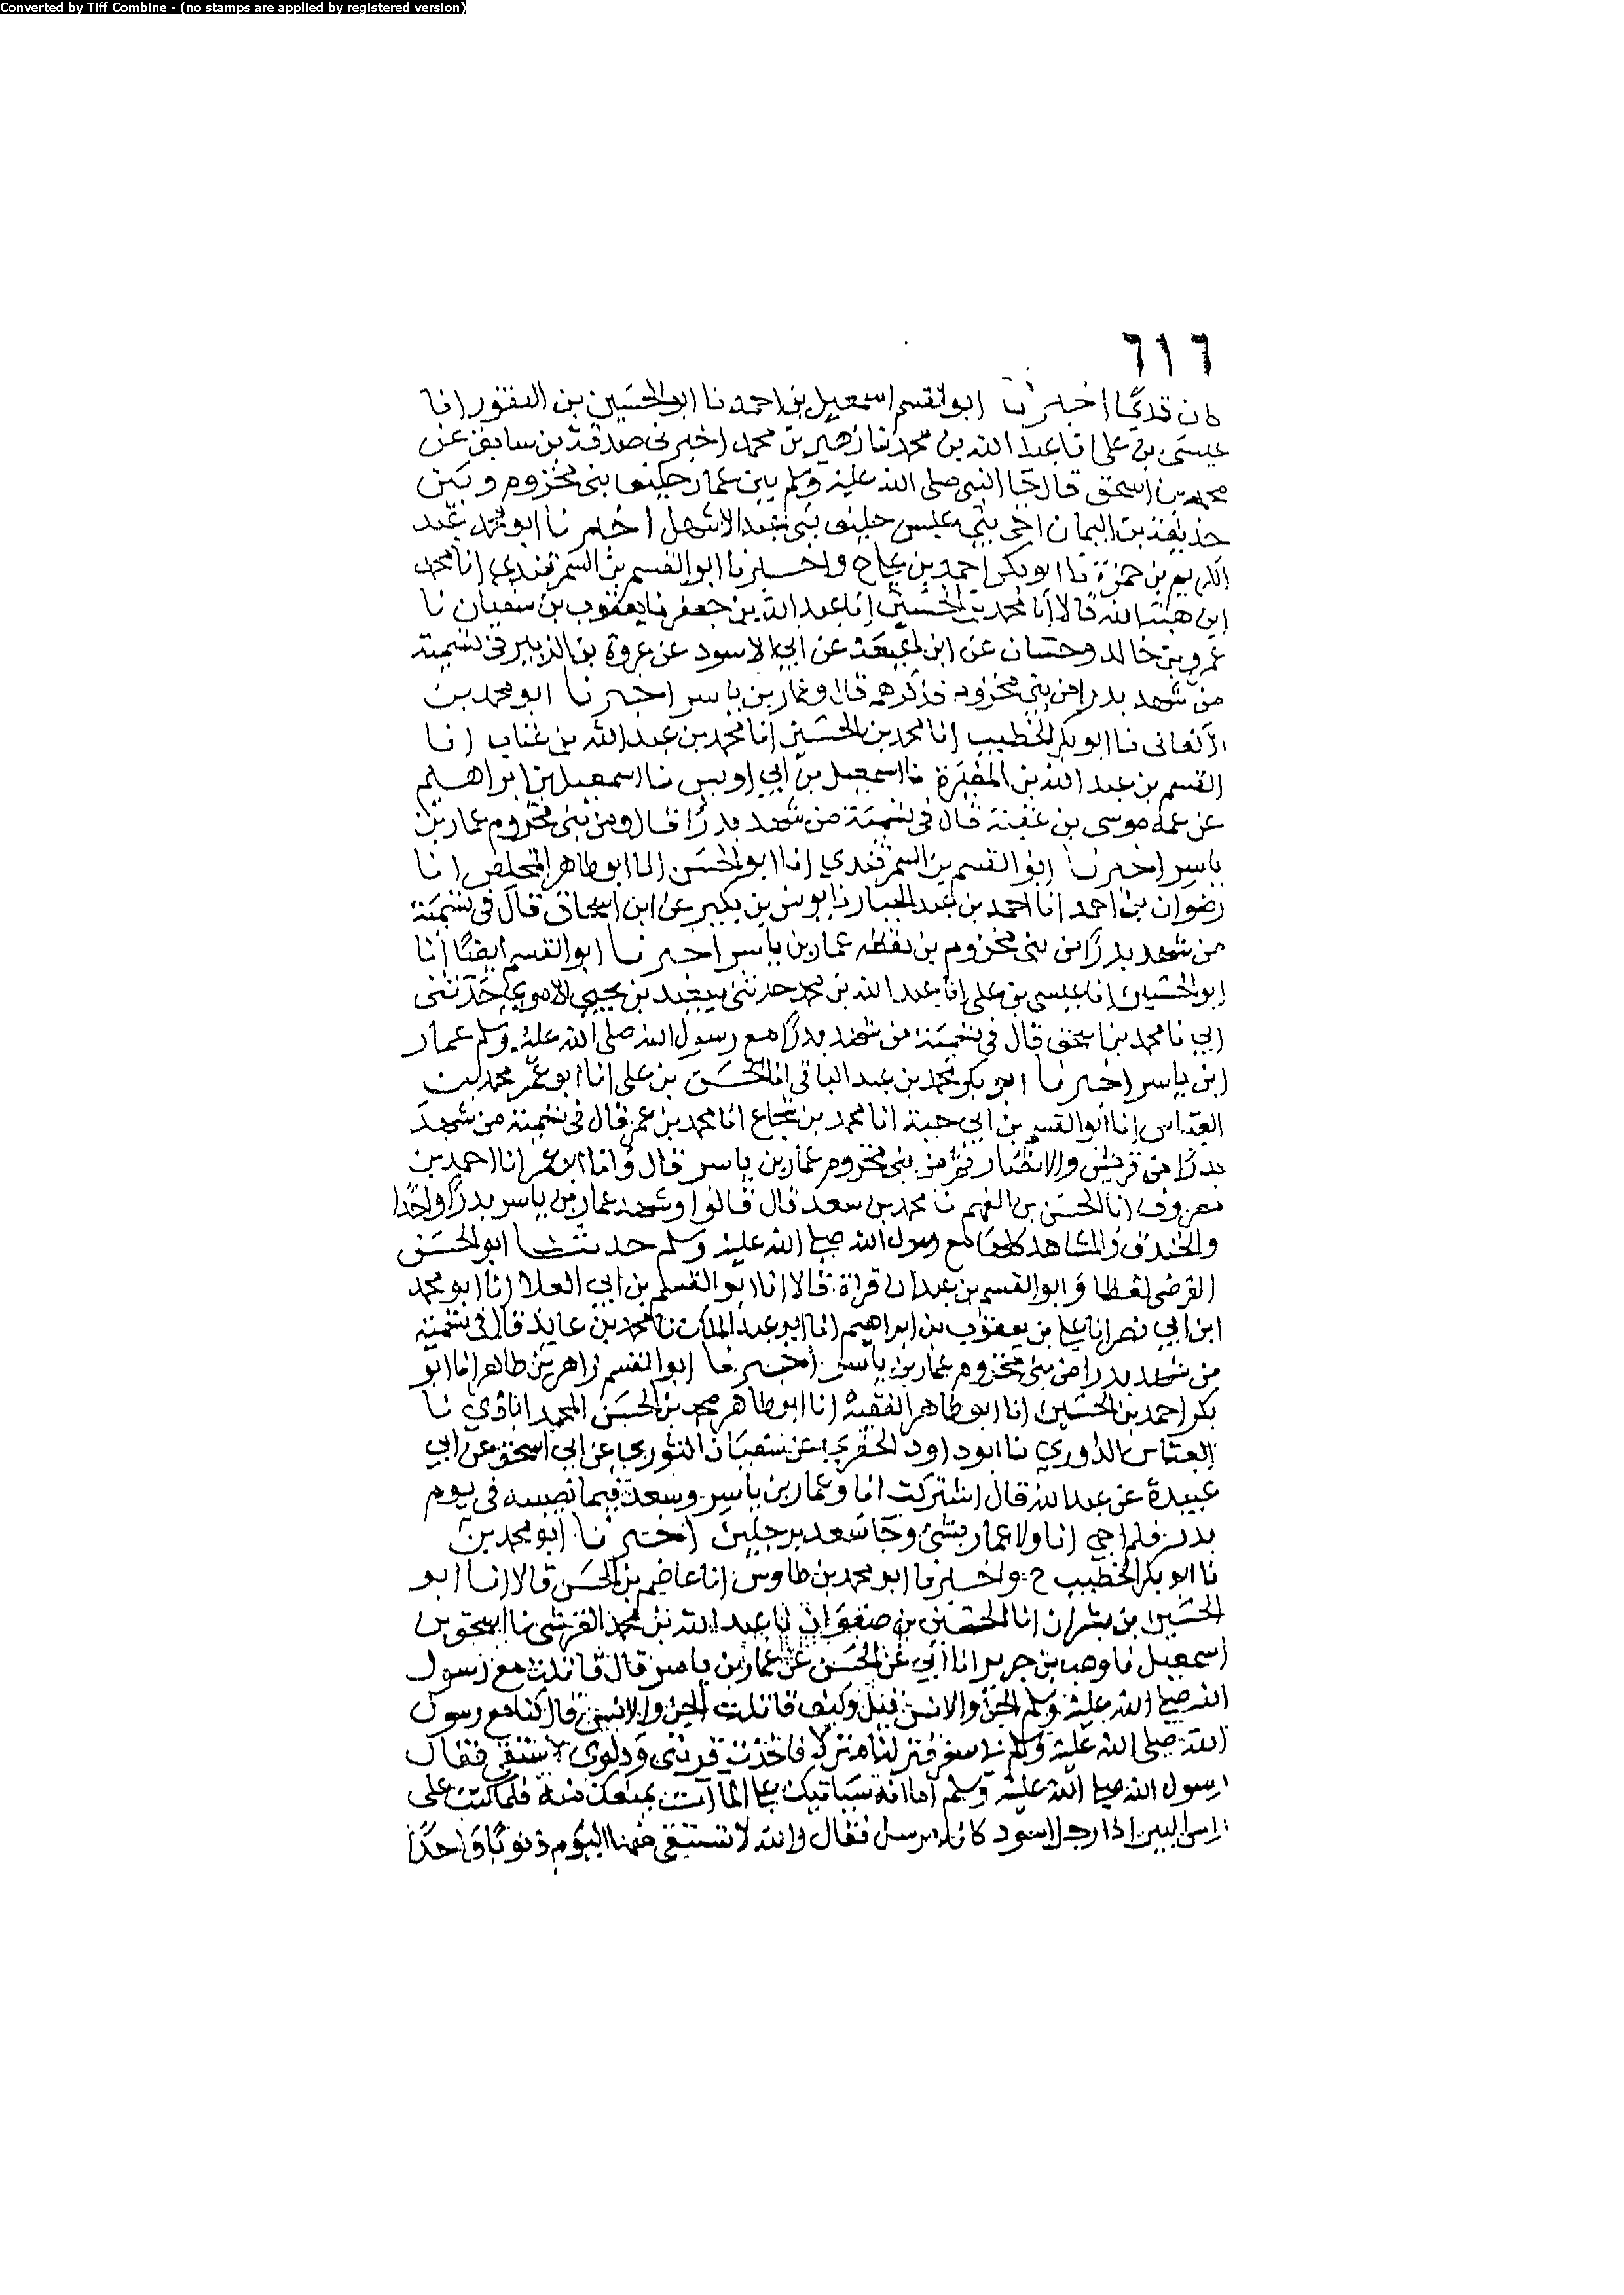 Converted by Tiff Combine - (no stamps are applied by registered version)
٦١٦
كان قديما اخبرنا ابو القسم اسمعيل بن احمد نا ابو الحسين بن النقور انا
عيسى بن على انا عبد الله بن محمد نا زهير بن محمد اخبرنى صدقة بن سابق عن
محمد بن اسحق قال اخا النبى صلى الله عليه وسلم بين عمار حليف بنى مخزوم وبين
حذيفة بن اليمان اخى بنى عبس حليف بنى عبد الاشهل اخبرنا ابو محمد عبد
الكريم بن حمزة نا ابو بكر احمد بن على ح واخبرنا ابو القسم بن السمرقندي انا محمد
ابن هبة الله قالا انا محمد بن الحسين انا عبد الله بن جعفر نا يعقوب بن سفيان نا
عمرو بن خالد وحسان عن ابن لهيعة عن ابي الاسود عن عروة بن الزبير فى تسمية
من شهد بدرا من بنى مخزوم فذكرهم قال وعمار بن ياسر اخبرنا ابو محمد بن
الاكفانى نا ابو بكر الخطيب انا محمد بن الحسين انا محمد بن عبد الله بن عتاب انا
القسم بن عبد الله بن المغيرة نا اسمعيل بن ابي اويس نا اسمعيل بن ابراهيم
عن عمه موسى بن عقبة قال فى تسمية من شهد بدرا قال ومن بنى مخزوم عمار بن
ياسر اخبرنا ابو القسم بن السمرقندي انا ابو الحسين انا ابو طاهر المخلص انا
رضوان بن احمد انا احمد بن عبد الجبار نا يونس بن بكير عن ابن اسحاق قال فى تسمية
من شهد بدرا من بنى مخزوم بن يقظه عمار بن ياسر اخبرنا ابو القسم ايضا انا
ابو الحسين انا عيسى بن على انا عبد الله بن محمد حدثنى سعيد بن يحيى الاموي حدثنى
ابي نا محمد بن اسحق قال فى تسمية من شهد بدرا مع رسول الله صلى الله عليه وسلم عمار
ابن ياسر اخبرنا ابو بكر محمد بن عبد الباقى انا الحسن بن على انا ابو عمر محمد بن
العباس انا ابو القسم بن ابي حية انا محمد بن شجاع انا محمد بن عمر قال فى تسمية من شهد
بدرا من قريش والانصار من بنى مخزوم عمار بن ياسر قال وانا ابو عمر انا احمد بن
معروف انا الحسين بن الفهم نا محمد بن سعد قال قالوا وشهد عمار بن ياسر بدرا واحدا
والخندق والمشاهد كلها مع رسول الله صلى الله عليه وسلم حدثنا ابو الحسن
الفرضى لفظا وابو القسم بن عبدان قراة قالا انا ابو القسم بن ابي العلا انا ابو محمد
ابن ابي نصر انا على بن يعقوب بن ابراهيم انا ابو عبد الملك نا محمد بن عايذ قال فى تسمية
من شهد بدرا من بنى مخزوم عمار بن ياسر اخبرنا ابو القسم زاهر بن طاهر انا ابو
بكر احمد بن الحسين انا ابو طاهر الفقيه انا ابو طاهر محمد بن الحسن المحمدابادي نا
العباس الدوري نا ابو داود الحفري عن سفيان الثوري عن ابي اسحق عن ابي
عبيدة عن عبد الله قال اشتركت انا وعمار بن ياسر وسعد فيما نصيبه فى يوم
بدر فلم اجى انا ولا عمار بشئ وجا سعد برجلين اخبرنا ابو محمد بن
نا ابو بكر الخطيب ح واخبرنا ابو محمد بن طاوس انا عاصم بن الحسن قالا انا ابو
الحسين بن بشران انا الحسين بن صفوان نا عبد الله بن محمد القرشى نا اسحق بن
اسمعيل نا وهب بن جرير انا ابي عن الحسن عن عمار بن ياسر قال قاتلت مع رسول
الله صلى الله عليه وسلم الجن والانس قيل وكيف قاتلت الجن والانس قال كنا مع رسول
الله صلى الله عليه وسلم فى سفر فنزلنا منزلا فاخذت قربتى ودلوى لاستقى فقال
رسول الله صلى الله عليه وسلم اما انه سياتيك على الما آت يمنعك منه فلما كنت على
راس البير اذا رجل اسود كانه مرس فقال والله لا تستقى منها اليوم ذنوبا واحدا